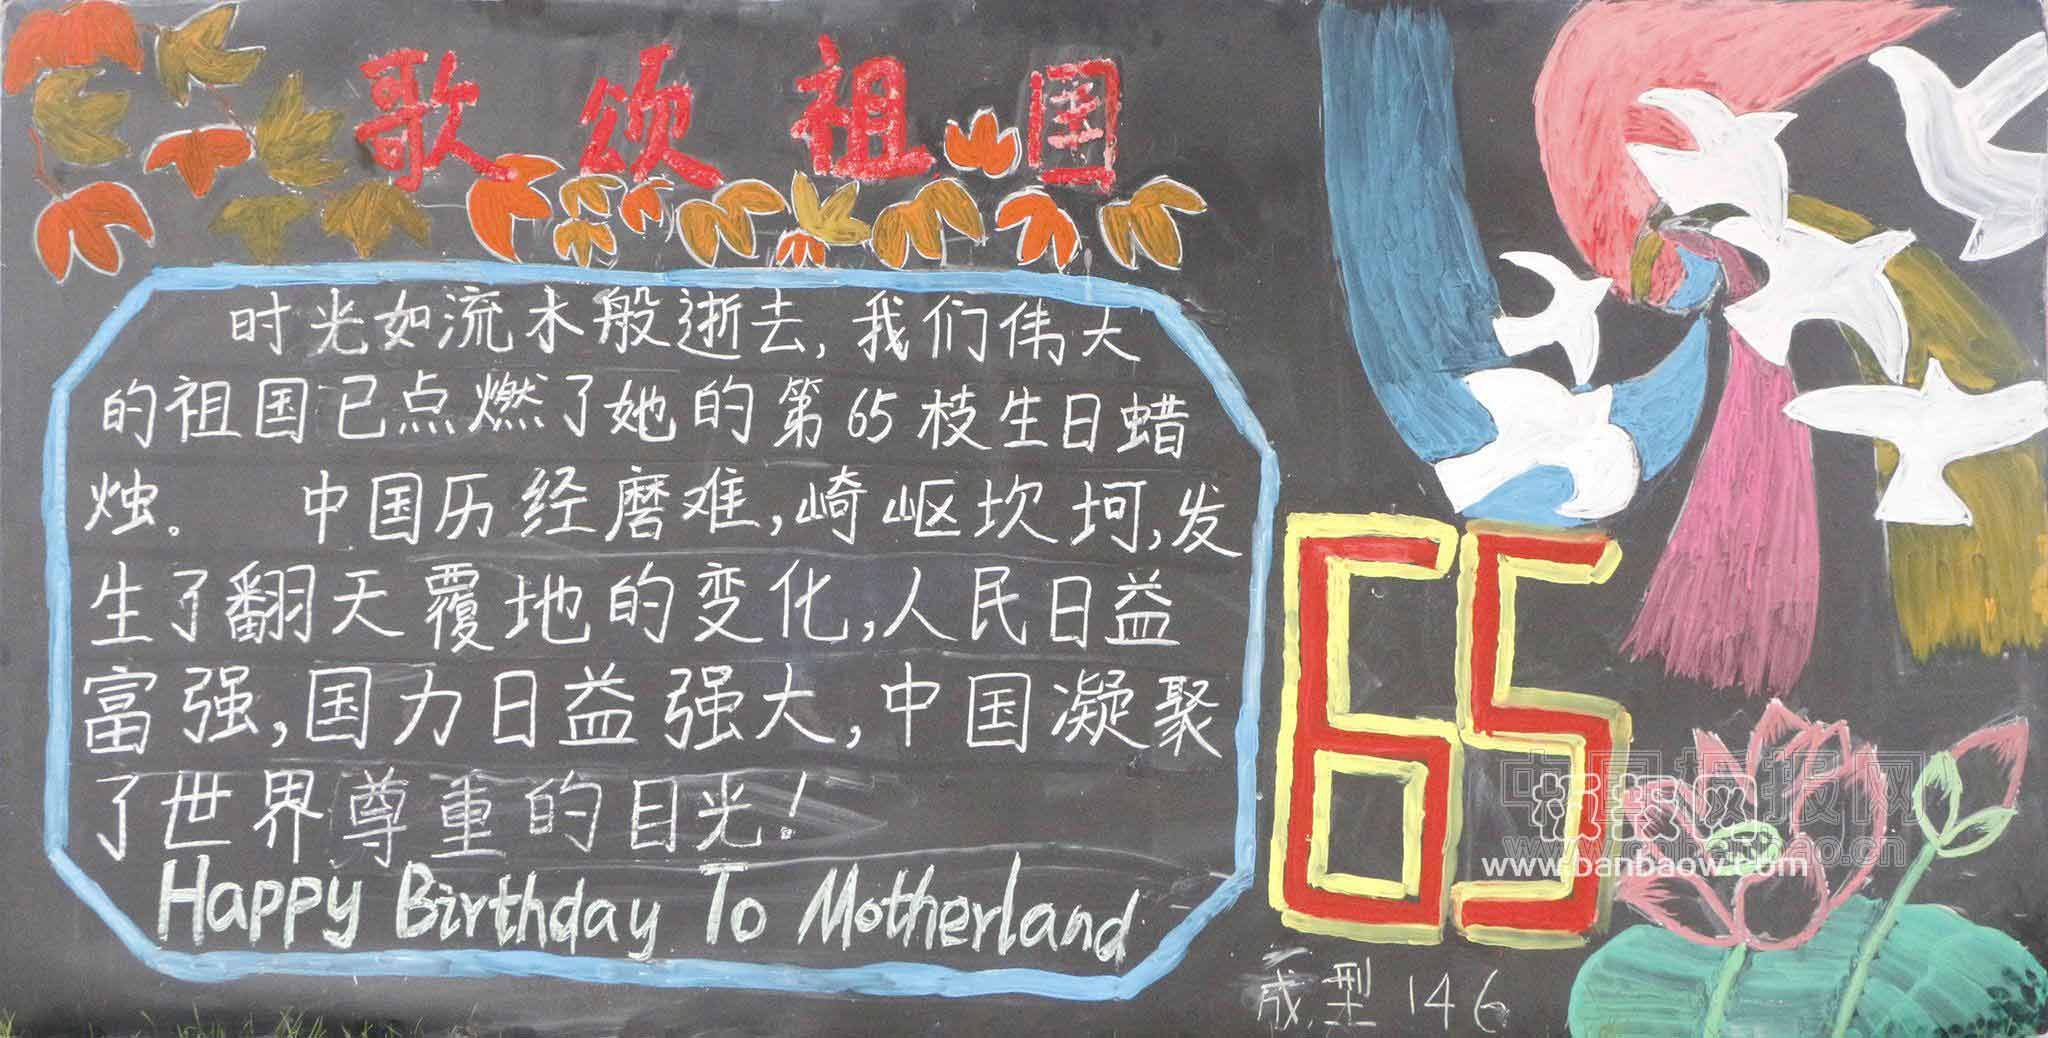 歌颂祖国
时光如流水般逝去,我们伟大
的祖国已点燃了她的第65枝生日蜡
烛。 中国历经磨难,崎岖坎坷,发
生了翻天覆地的变化,人民日益
富强,国力日益强大,中国凝聚
了世界尊重的目光!
Happy Birthday To Motherland
65
成型146
中国板报网
板报网
www.banbaow.com